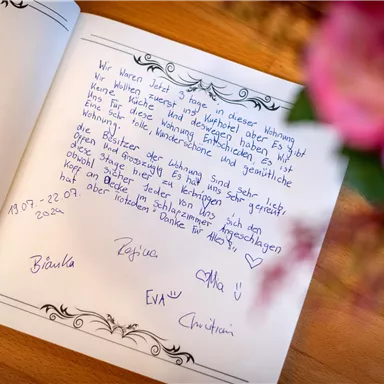 Wir Waren Jetzt 3 tage in dieser Wohnung
Wir Wollten zuerst ins Kurhotel aber Es gibt
Keine Küche und deswegen haben Wir
Uns Für diese Wohnung Entschieden, Es ist
Eine sehr tolle, Wunderschöne und gemütliche
Wohnung.
die Besitzer der Wohnung Sind sehr lieb,
Offen und Grosszügig Es hat uns sehr gefreut,
diese 3tage hier zu Verbringen
Obwohl sicher Jeder Von uns sich den
Kopf an Decke im Schlafzimmer Angeschlagen
hat aber trotzdem "Danke Für Alles"!,, ♡
19.07.-22.07.
2024
Bianka
Regina
♡Mia :)
EVA :)